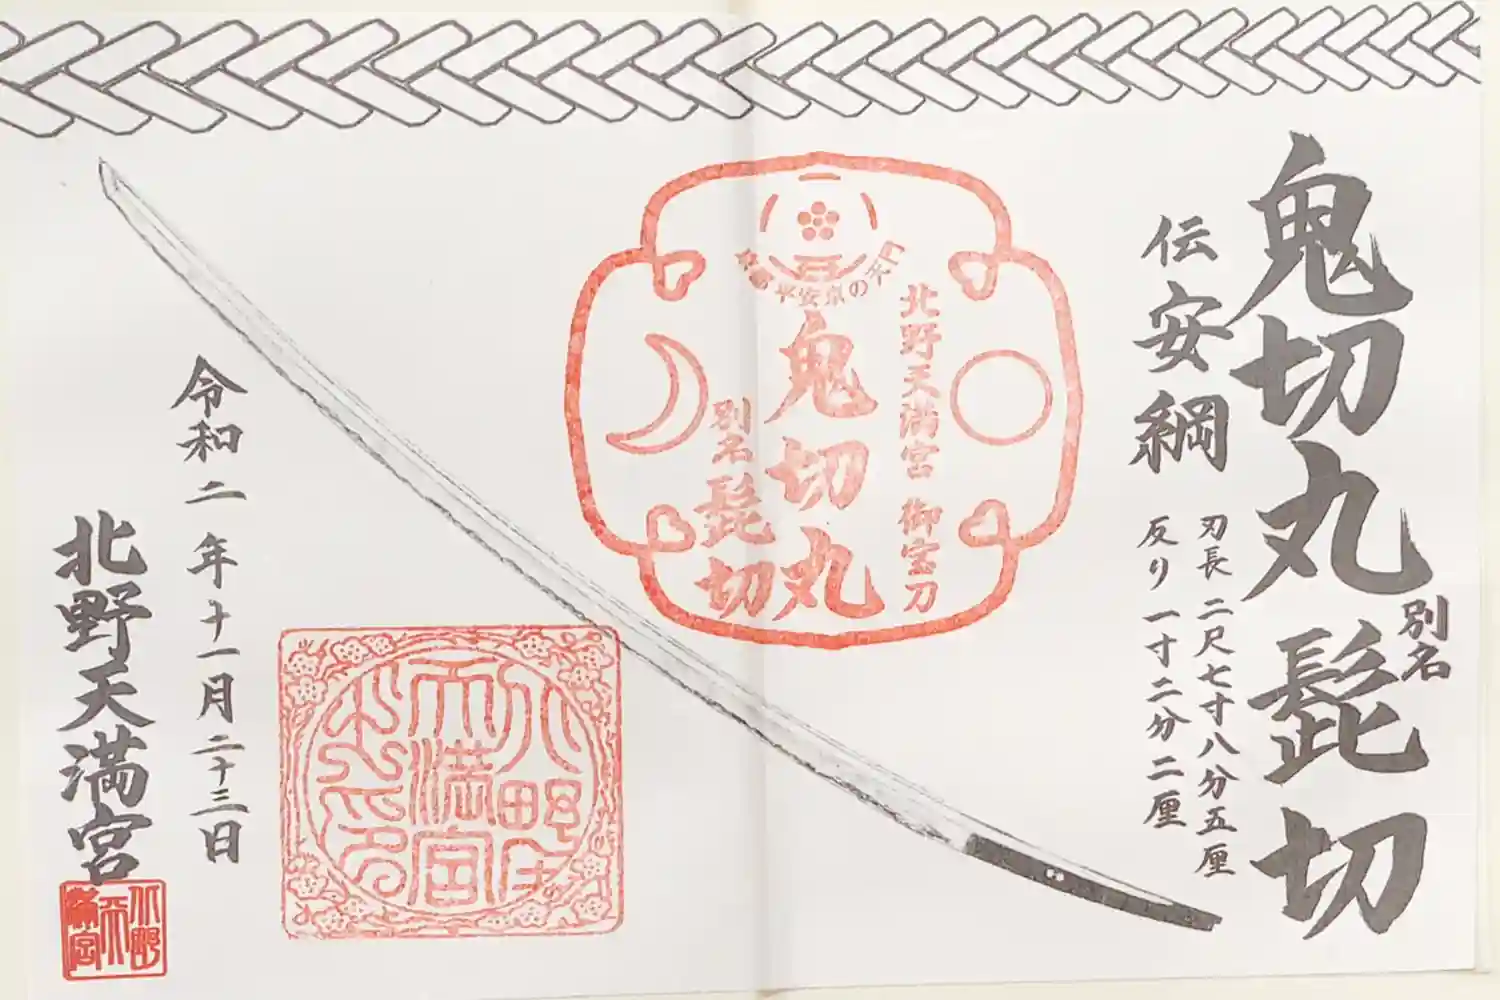 鬼切丸 別名 髭切
伝安綱
刃長 二尺七寸八分五厘
反り 一寸二分二厘
平安京の天門
北野天満宮 御宝刀
鬼切丸
別名 髭切
令和二年十一月二十三日
北野天満宮
北野
天
満宮